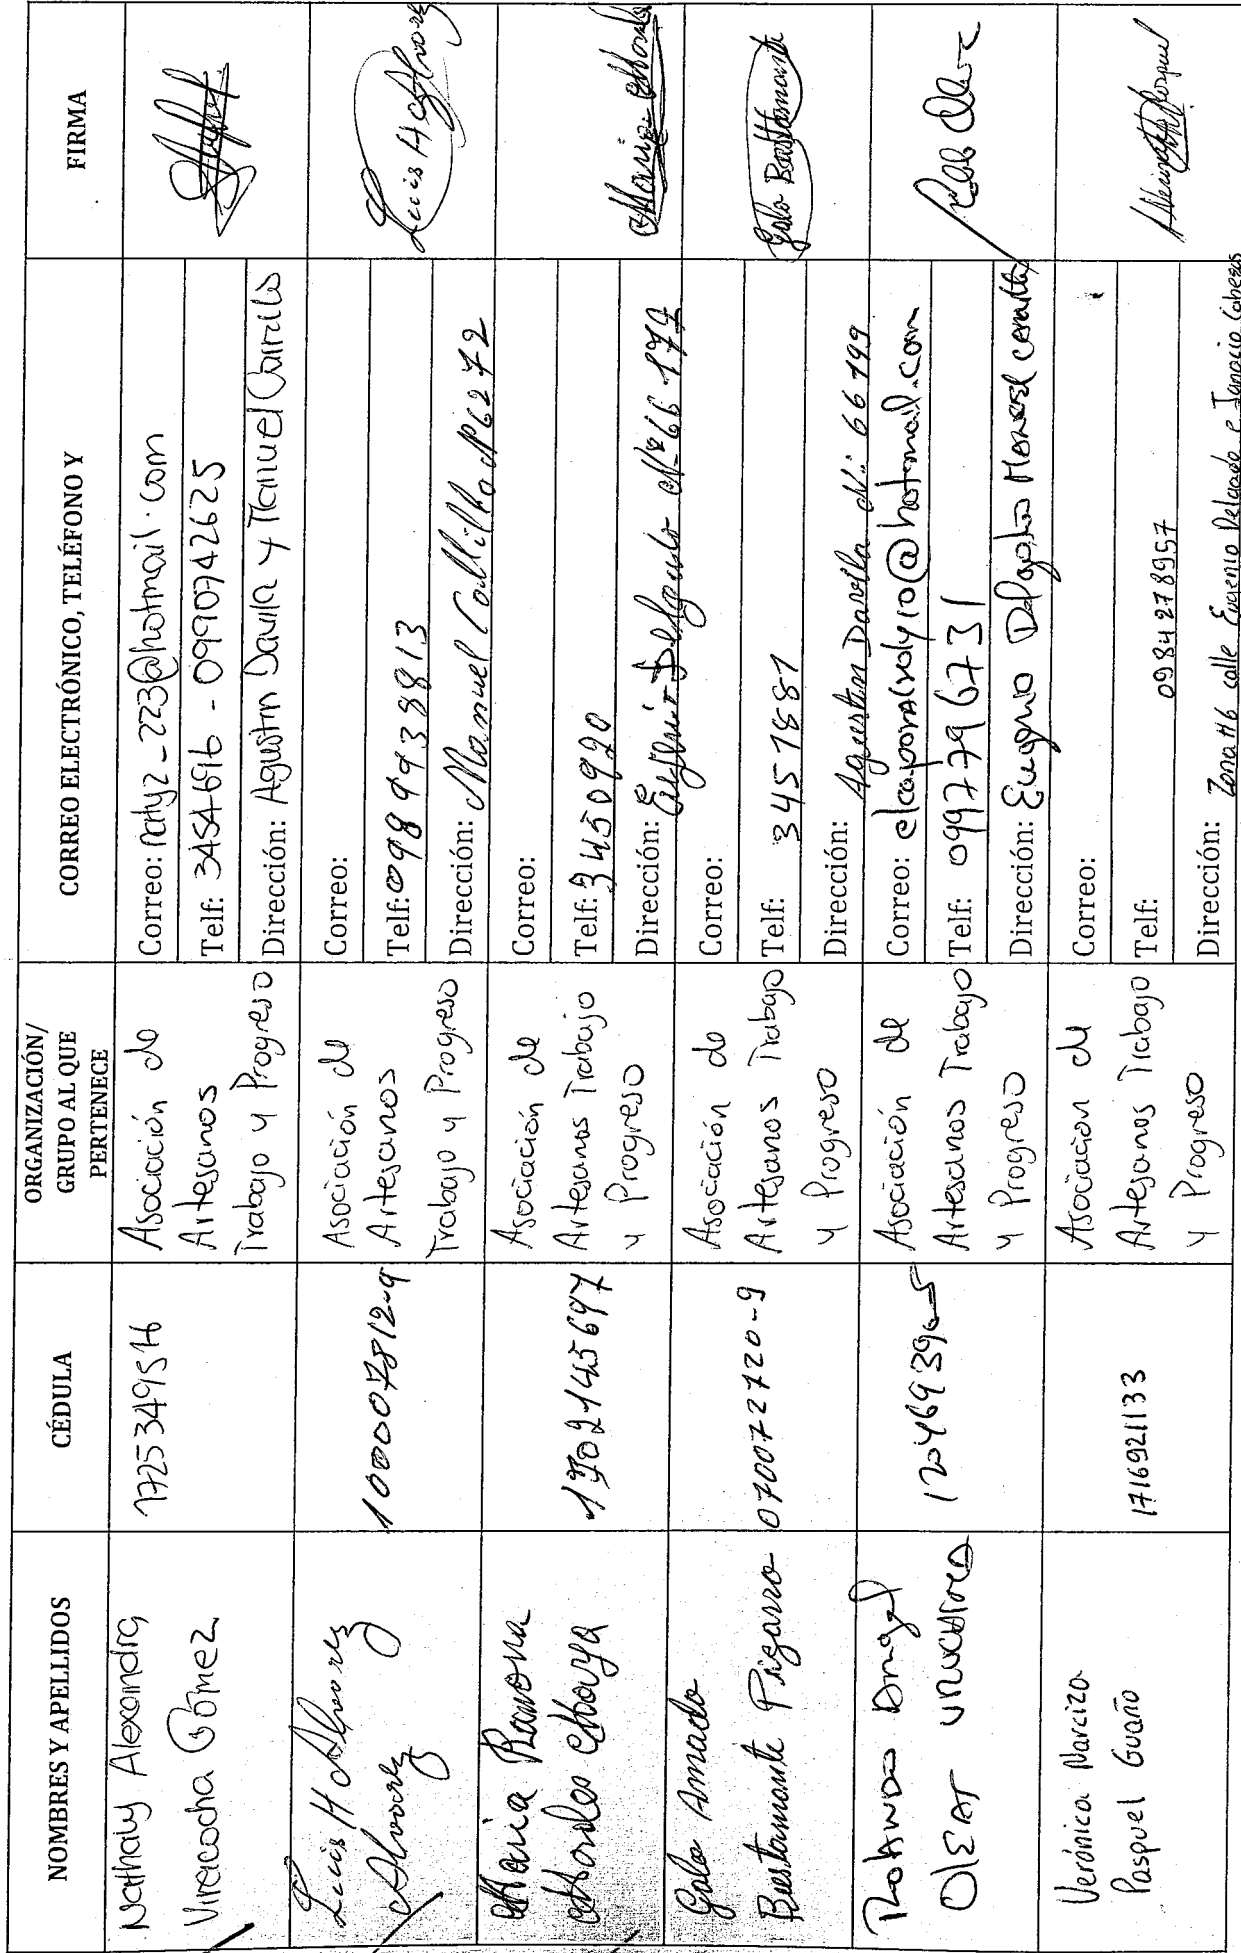 NOMBRES Y APELLIDOS
CÉDULA
ORGANIZACIÓN/
GRUPO AL QUE
PERTENECE
CORREO ELECTRÓNICO, TELÉFONO Y
FIRMA
Nathaly Alexandra
Viracocha Gómez
1725349516
Asociación de
Artesanos
Trabajo y Progreso
Correo: natyz_223@hotmail.com
Telf: 3454696 - 0990742625
Dirección: Agustin Davila y Manuel Carrillo
Luis H Alvarez
Alvarez
100078129
Asociación de
Artesanos
Trabajo y Progreso
Correo:
Telf: 0989938813
Dirección: Manuel
Luis H Alvarez
Maria Ramona
Morales Moya
1702145697
Asociación de
Artesanos Trabajo
y Progreso
Correo:
Telf: 3450920
Dirección: Eugenio Delgado Nº 66 179
Maria Morales
Galo Amado
Bustamante Pizarro
070072720-9
Asociación de
Artesanos Trabajo
y Progreso
Correo:
Telf: 3457887
Dirección: Agustin Davila Nº: 66 199
Galo Bustamante
Rolando Angel
Asociación de
Artesanos Trabajo
y Progreso
Correo: elcaporalrolyio@hotmail.com
Telf: 0997796731
Dirección: Eugenio
Verónica Narciza
Paspuel Guaño
1716921133
Asociación de
Artesanos Trabajo
y Progreso
Correo:
Telf: 0984278957
Dirección: Zona H6 calle Eugenio Delgado e Ignacio Cabezas